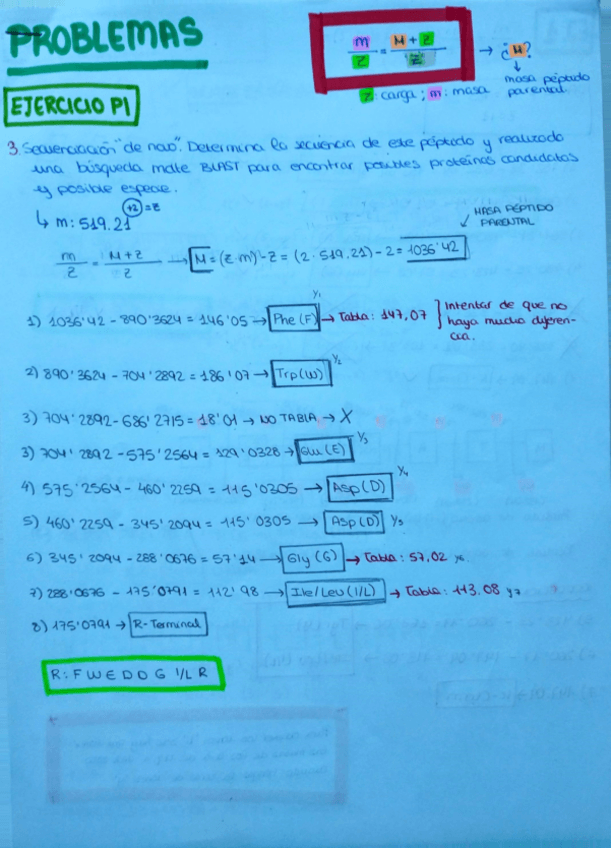 PROBLEMAS
m/z = M + z/z → ¿M?
↓
masa péptido
parental
z: carga ; m: masa
EJERCICIO P1
3. Secuenciación "de novo". Determina la secuencia de este péptido y realizado
una búsqueda mate BLAST para encontrar posibles proteínas candidatas
y posible especie.
↳ m: 519.21 +2 = z
MASA PÉPTIDO
PARENTAL
m/z = M+z/z → M = (z·m) - z = (2 · 519.21) - 2 = 1036'42
1) 1036'42 - 890'3624 = 146'05 → Phe (F) y1 → Tabla: 147,07 } Intentar de que no
haya mucho diferen-
cia.
2) 890'3624 - 704'2892 = 186'07 → Trp (W) y2
3) 704'2892 - 686'2715 = 18'01 → NO TABLA → X
3) 704'2892 - 575'2564 = 129'0328 → Glu (E) y3
4) 575'2564 - 460'2259 = 115'0305 → Asp (D) y4
5) 460'2259 - 345'2094 = 115'0305 → Asp (D) y5
6) 345'2094 - 288'0676 = 57'14 → Gly (G) → Tabla: 57,02 y6
7) 288'0676 - 175'0791 = 112'98 → Ile/Leu (I/L) → Tabla: 113.08 y7
8) 175'0791 → R-Terminal
R: F W E D D G I/L R